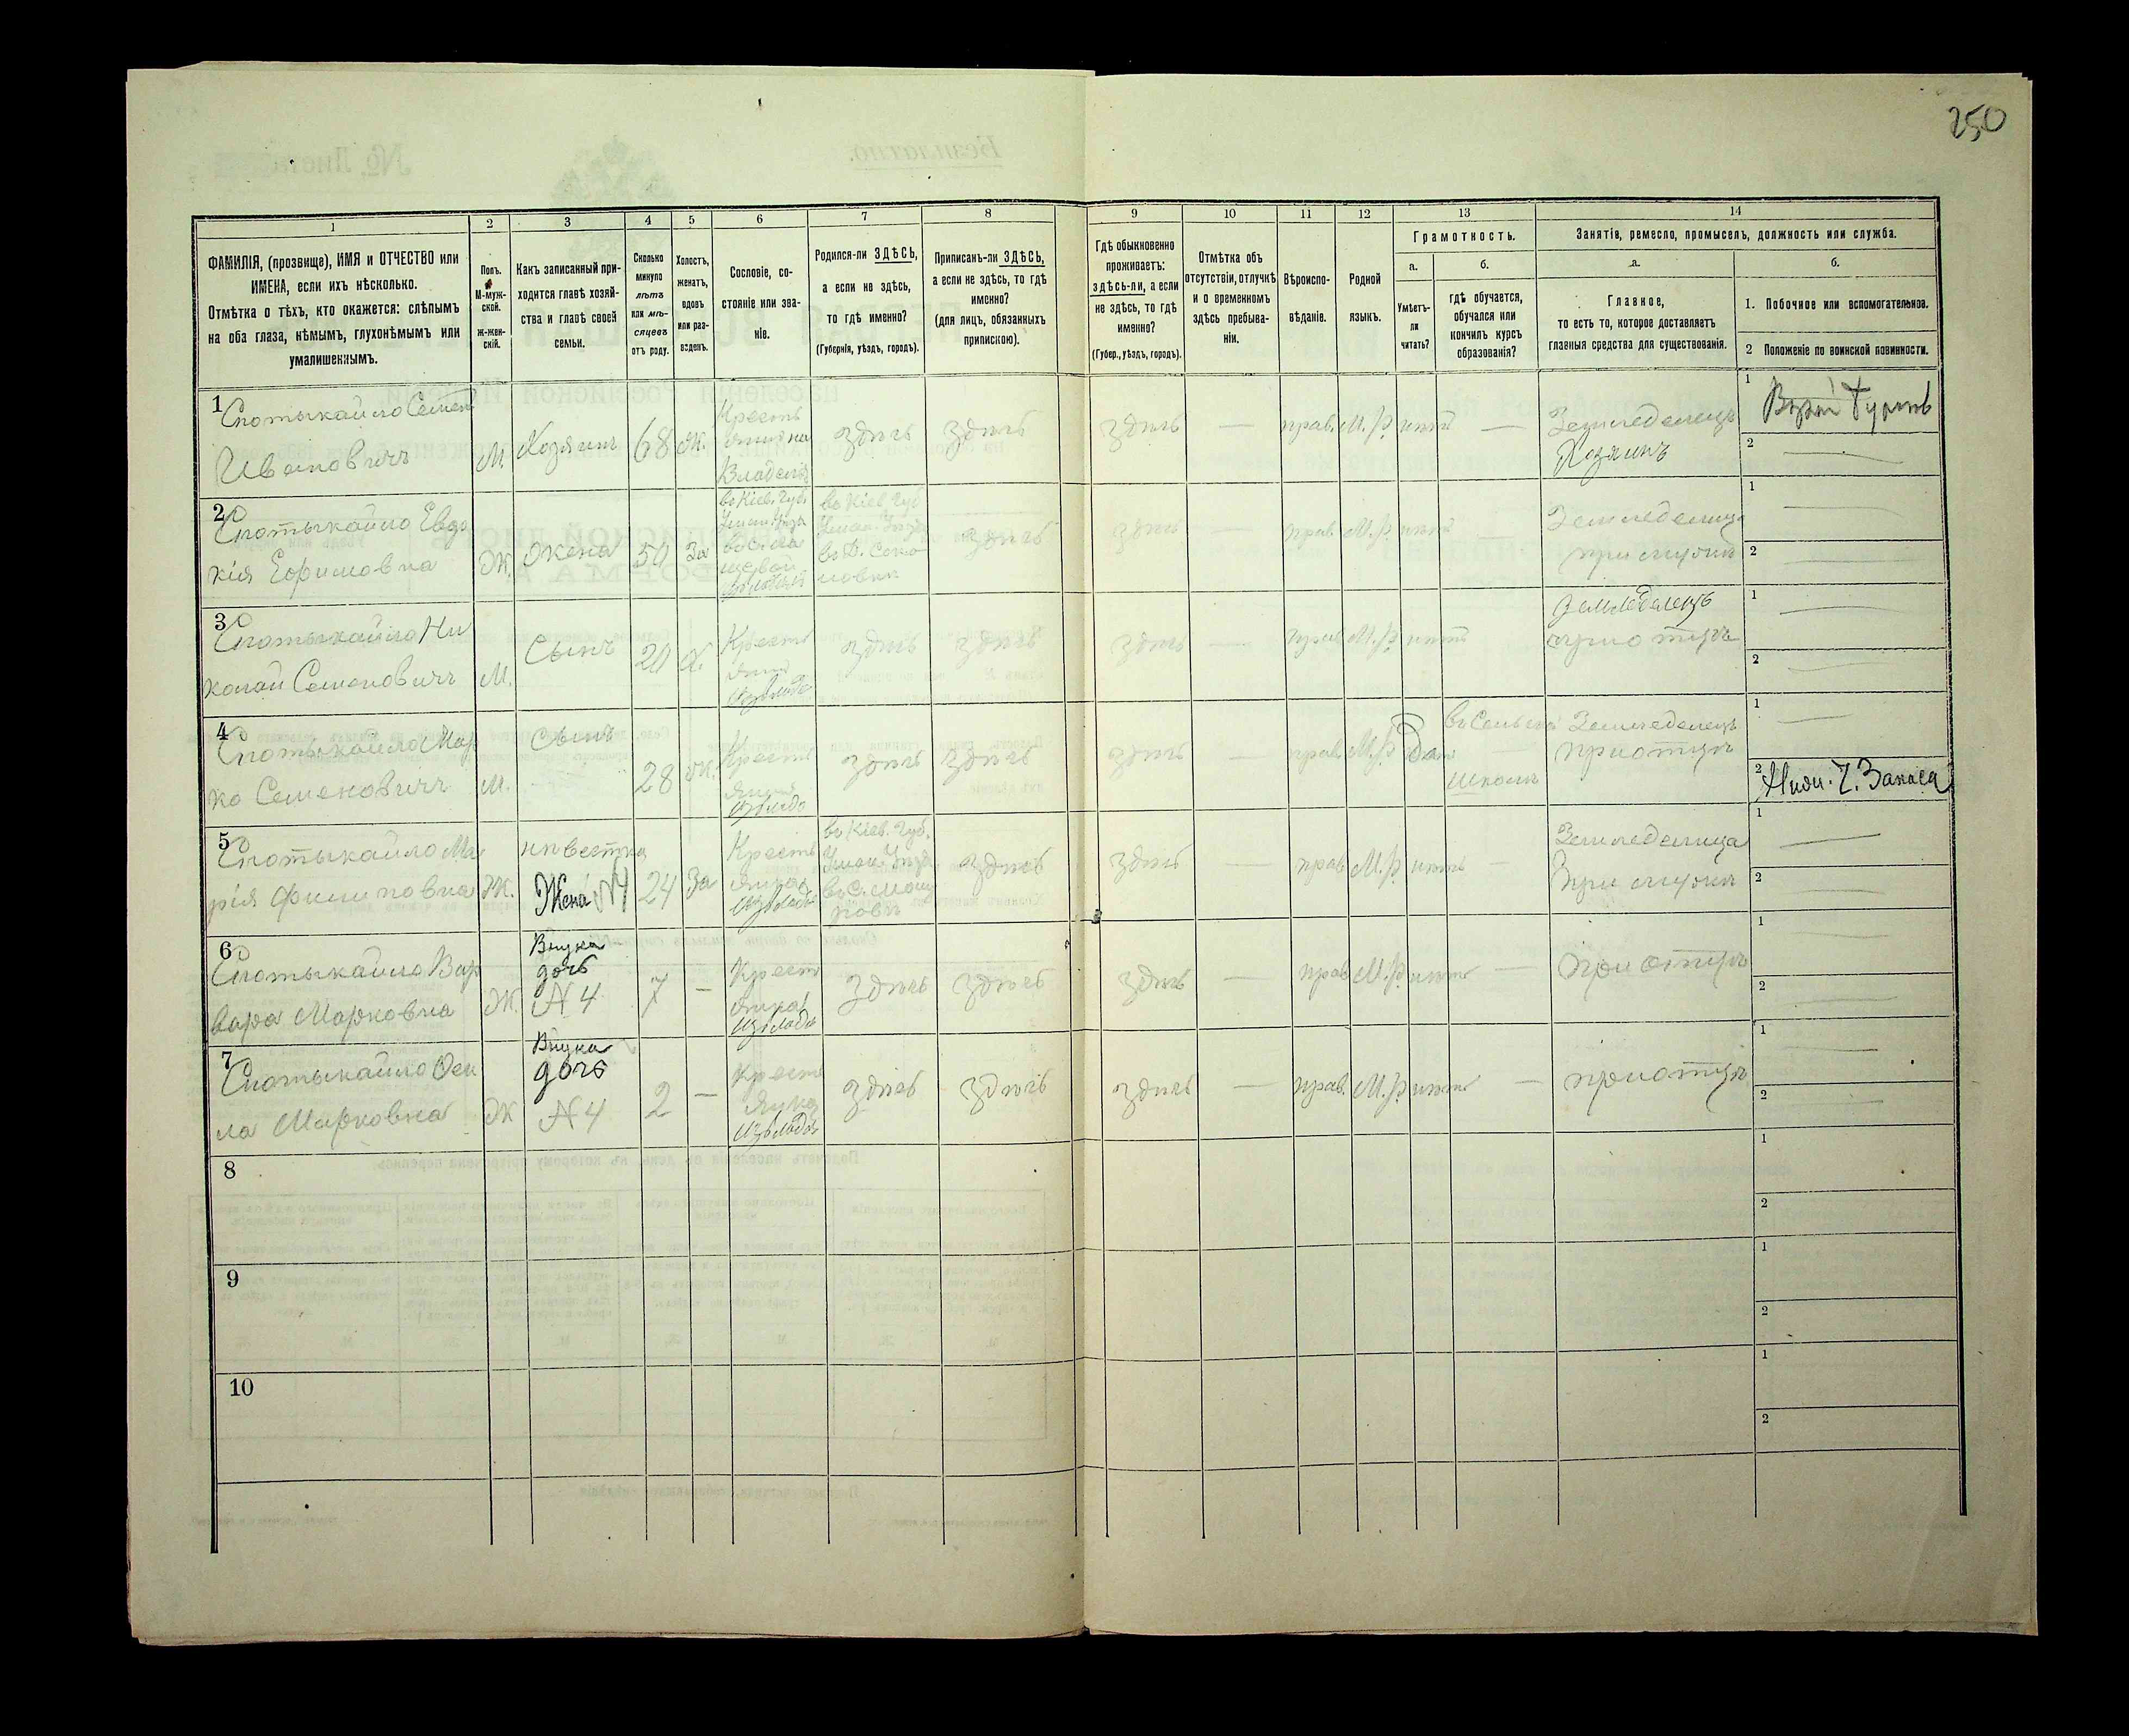 250
1 2 3 4 5 6 7 8 9 10 11 12 13 14
ФАМИЛІЯ, (прозвище), ИМЯ и ОТЧЕСТВО или
ИМЕНА, если ихъ нѣсколько.
Отмѣтка о тѣхъ, кто окажется: слѣпымъ
на оба глаза, нѣмымъ, глухонѣмымъ или
умалишеннымъ.
Полъ.
М-муж-
ской.
ж-жен-
скій.
Какъ записанный при-
ходится главѣ хозяй-
ства и главѣ своей
семьи.
Сколько
минуло
лѣтъ
или мѣ-
сяцевъ
отъ роду.
Холостъ,
женатъ,
вдовъ
или раз-
веденъ.
Сословіе, со-
стояніе или зва-
ніе.
Родился-ли ЗДѢСЬ,
а если не здѣсь,
то гдѣ именно?
(Губернія, уѣздъ, городъ).
Приписанъ-ли ЗДѢСЬ,
а если не здѣсь, то гдѣ
именно?
(для лицъ, обязанныхъ
припискою).
Гдѣ обыкновенно
проживаетъ:
здѣсь-ли, а если
не здѣсь, то гдѣ
именно?
(Губер., уѣздъ, городъ).
Отмѣтка объ
отсутствіи, отлучкѣ
и о временномъ
здѣсь пребыва-
ніи.
Вѣроиспо-
вѣданіе.
Родной
языкъ.
Грамотность.
а.
Умѣетъ-
ли
читать?
б.
гдѣ обучается,
обучался или
кончилъ курсъ
образованія?
Занятія, ремесло, промыселъ, должность или служба.
а.
Главное,
то есть то, которое доставляетъ
главныя средства для существованія.
б.
1. Побочное или вспомогательное.
2 Положеніе по воинской повинности.
1
Спотыкайло Семен
Ивановичъ
М.
Хозяинъ
68
Ж.
Кресть
Владель
здѣсь
здѣсь
здѣсь
—
прав.
М.р.
нѣтъ
—
Земледелецъ
Хозяинъ
1
2
2
Спотыкайло Евдо
кія Ефимовна
Ж.
Жена
50
За
въ Кіев. Губ.
Уман. Уѣзд
въ Кіев. Губ
Уман. Уѣзд
въ Д. Секо
здѣсь
здѣсь
—
прав.
М.р.
нѣтъ
—
Земледелица
при мужѣ
1
2
3
Спотыкайло Ни
колай Семеновичъ
М.
Сынъ
20
Х.
Кресть
здѣсь
здѣсь
здѣсь
—
прав.
М.р.
нѣтъ
Земледелецъ
при отцѣ
1
2
4
Спотыкайло Мар
ко Семеновичъ
М.
Сынъ
28
Ж.
Кресть
здѣсь
здѣсь
здѣсь
—
прав.
М.р.
Да
въ Сельской
школѣ
Земледелецъ
при отцѣ
1
2
Запаса
5
Спотыкайло Ма
рія Филиповна
Ж.
нѣвестка
Жена №4
24
За
Кресть
янка
въ Кіев. Губ.
Уман. Уѣзд
здѣсь
здѣсь
—
прав.
М.р.
нѣтъ
—
Земледелица
При мужѣ
1
2
6
Спотыкайло Вар
вара Марковна
Ж.
Внука
дочь
№ 4
7
—
Крест
янка
здѣсь
здѣсь
здѣсь
—
прав.
М.р.
нѣтъ
—
При отцѣ
1
2
7
Спотыкайло Фек
ла Марковна
Ж
Внука
дочь
№ 4
2
—
Кресть
янка
здѣсь
здѣсь
здѣсь
—
прав.
М.р.
нѣтъ
—
при отцѣ
1
2
8
1
2
9
1
2
10
1
2